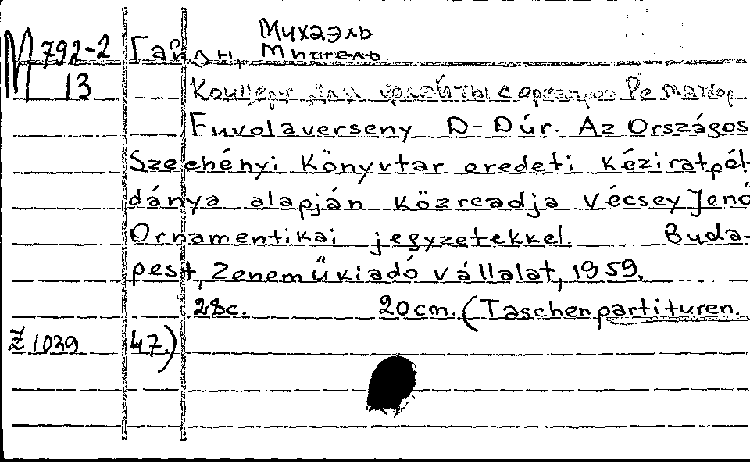 Михаэль
М 792-2 Гайдн, Мишель
13 Концерт для флейты с оркестром Ре мажор
Fuvolaverseny D-Dúr. Az Országos
Szechényi Könyvtar eredeti kéziratpél
dánya alapján közreadja Vécsey Jenő
Ornamentikai jegyzetekkel. Buda-
pest, Zeneműkiadó vállalat, 1959.
28c. 20cm. (Taschenpartituren.
1039 47.)